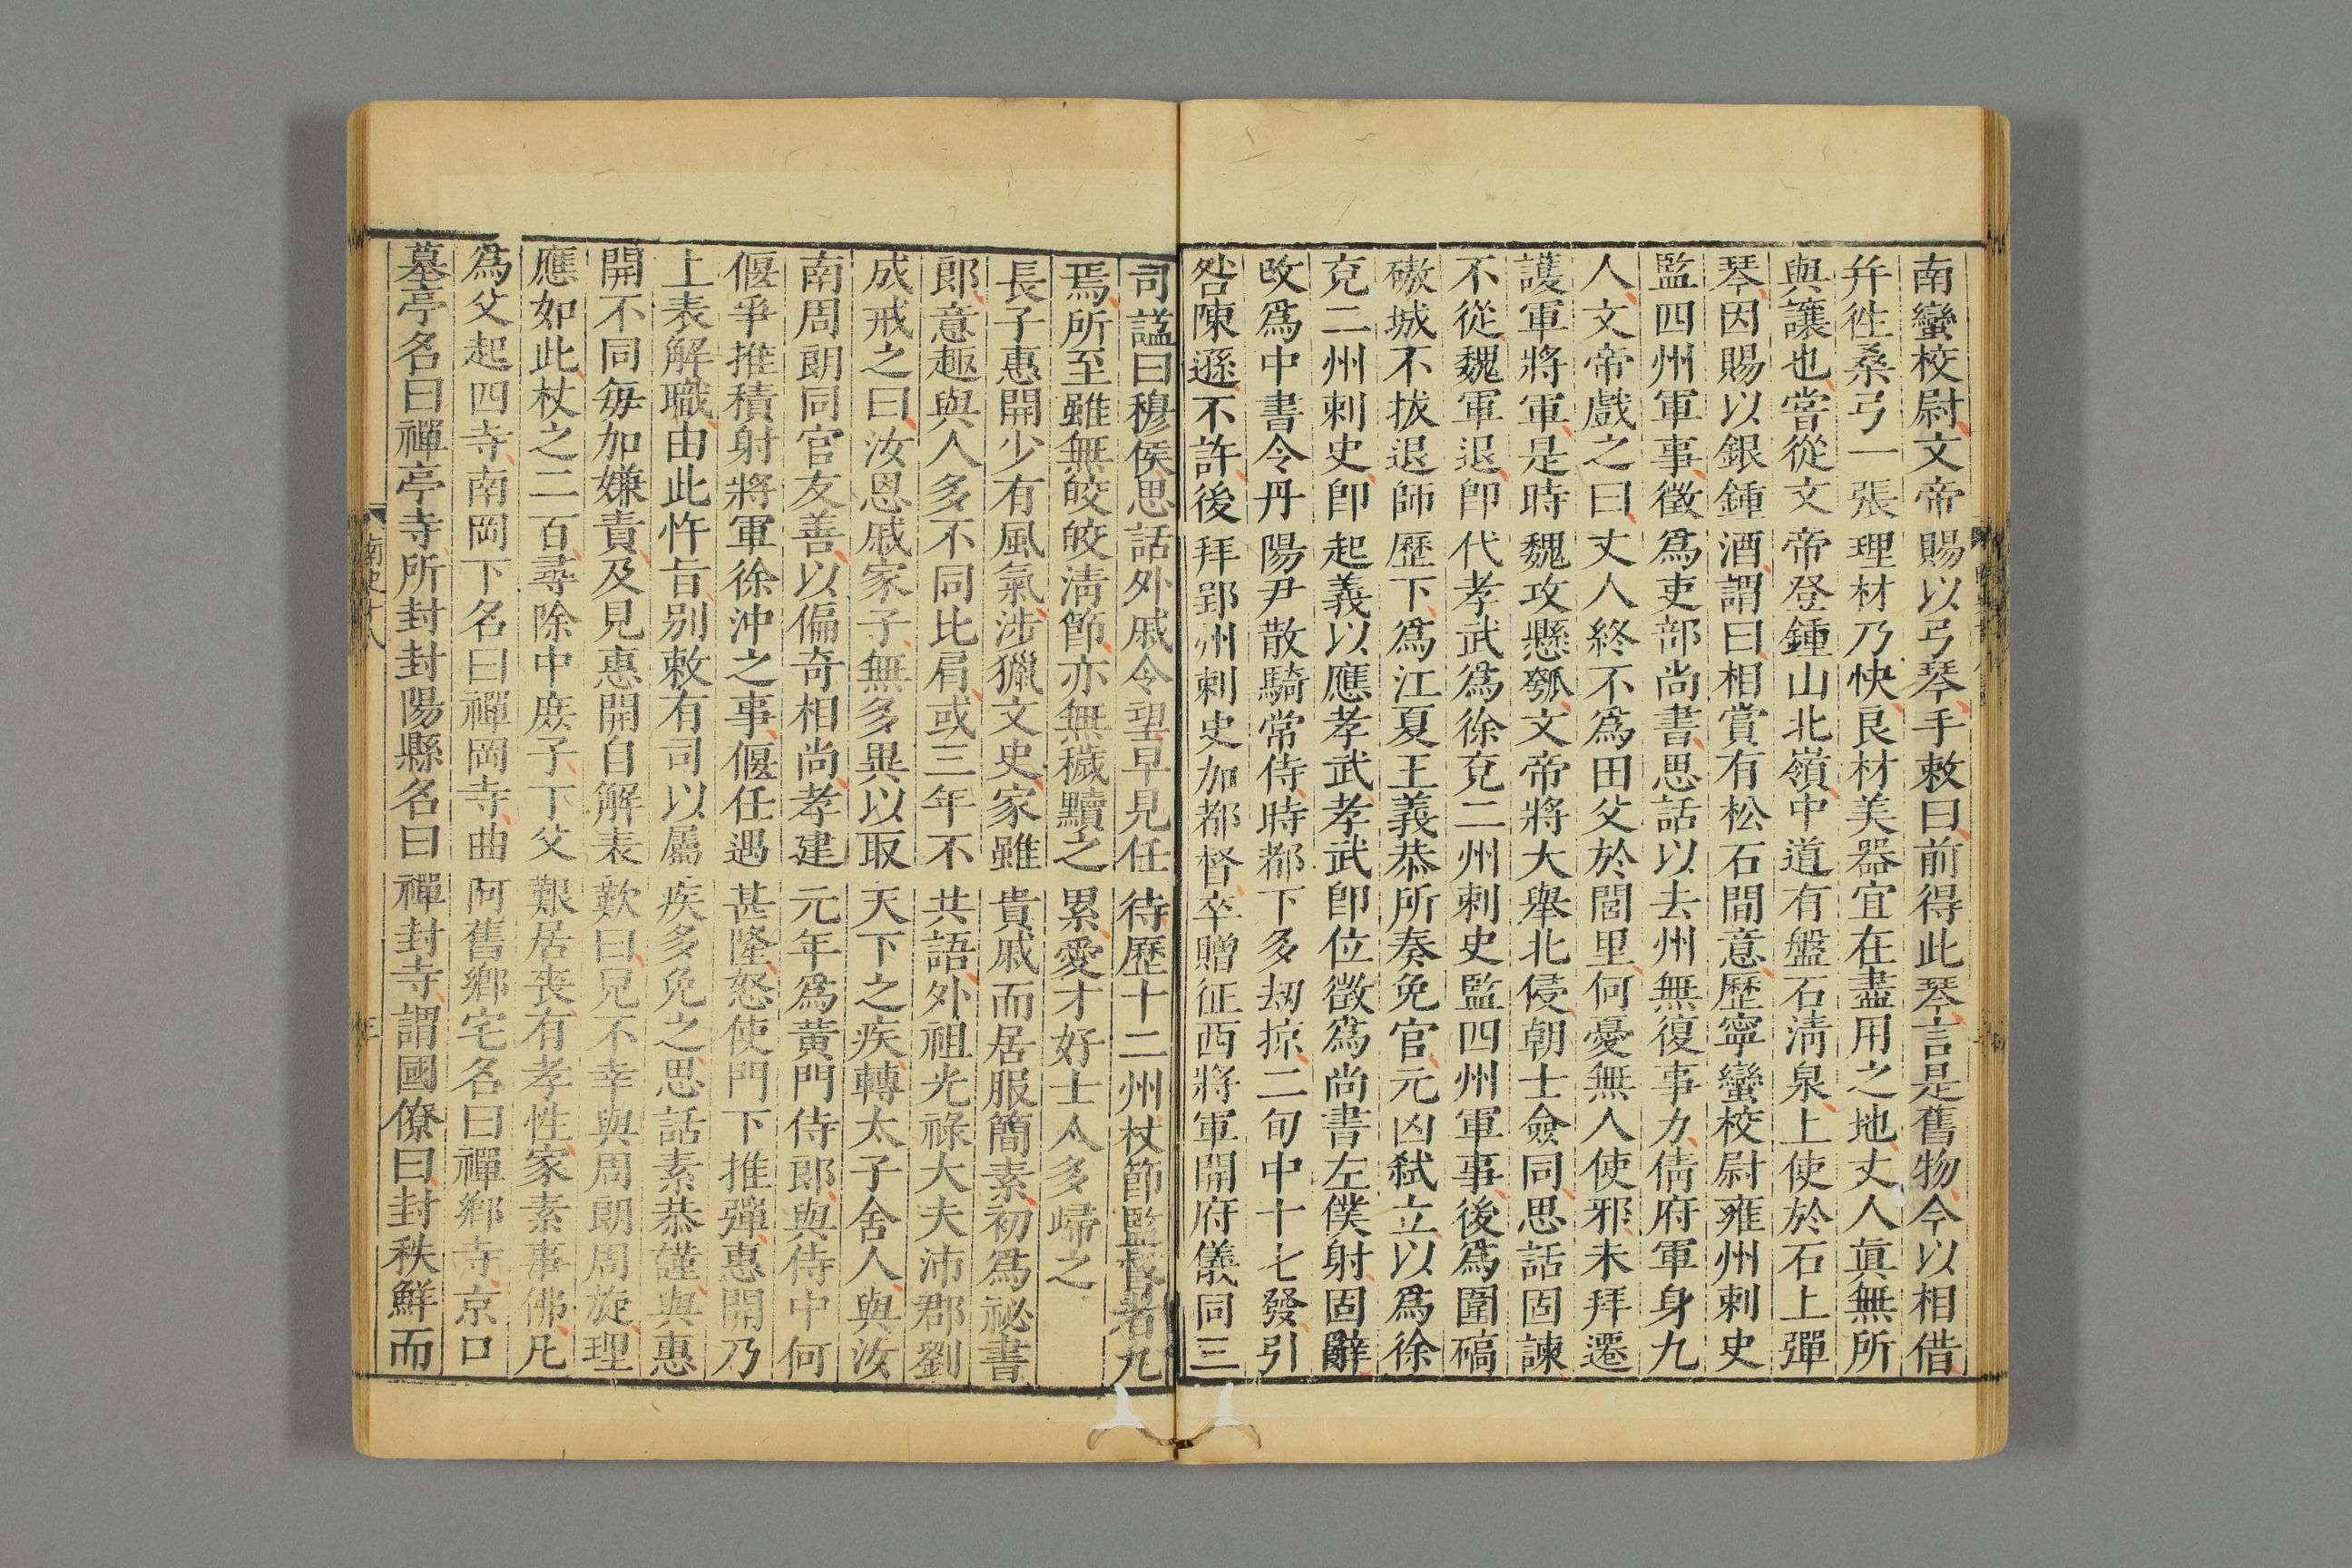 南蠻校尉文帝賜以弓琴手敕曰前得此琴言是舊物今以相借
并徃桑弓一張理材乃快良材美器宜在盡用之地丈人眞無所
與讓也嘗從文帝登鍾山北嶺中道有盤石淸泉上使於石上彈
琴因賜以銀鍾酒謂曰相賞有松石間意歷寧蠻校尉雍州刺史
監四州軍事徵爲吏部尚書思話以去州無復事力倩府軍身九
人文帝戲之曰丈人終不爲田父於閭里何憂無人使邪未拜遷
護軍將軍是時魏攻懸瓠文帝將大舉北侵朝士僉同思話固諫
不從魏軍退卽代孝武爲徐兗二州刺史監四州軍事後爲圍碻
磝城不拔退師歷下爲江夏王義恭所奏免官元凶弑立以爲徐
兗二州刺史卽起義以應孝武孝武卽位徵爲尚書左僕射固辭
改爲中書令丹陽尹散騎常侍時都下多劫掠二旬中十七發引
咎陳遜不許後拜郢州刺史加都督卒贈征西將軍開府儀同三
司諡曰穆侯思話外戚令望早見任待歷十二州杖節監督者九
焉所至雖無皎皎淸節亦無穢黷之累愛才好士人多歸之
長子惠開少有風氣涉獵文史家雖貴戚而居服簡素初爲祕書
郎意趣與人多不同比肩或三年不共語外祖光祿大夫沛郡劉
成戒之曰汝恩戚家子無多異以取天下之疾轉太子舍人與汝
南周朗同官友善以偏奇相尚孝建元年爲黃門侍郎與侍中何
偃爭推積射將軍徐沖之事偃任遇甚隆怒使門下推彈惠開乃
上表解職由此忤旨別敕有司以屬疾多免之思話素恭謹與惠
開不同每加嫌責及見惠開自解表歎曰兒不幸與周朗周旋理
應如此杖之二百尋除中庶子丁父艱居喪有孝性家素事佛凡
爲父起四寺南岡下名曰禪岡寺曲阿舊鄉宅名曰禪鄉寺京口
墓亭名曰禪亭寺所封封陽縣名曰禪封寺謂國僚曰封秩鮮而
南史十八